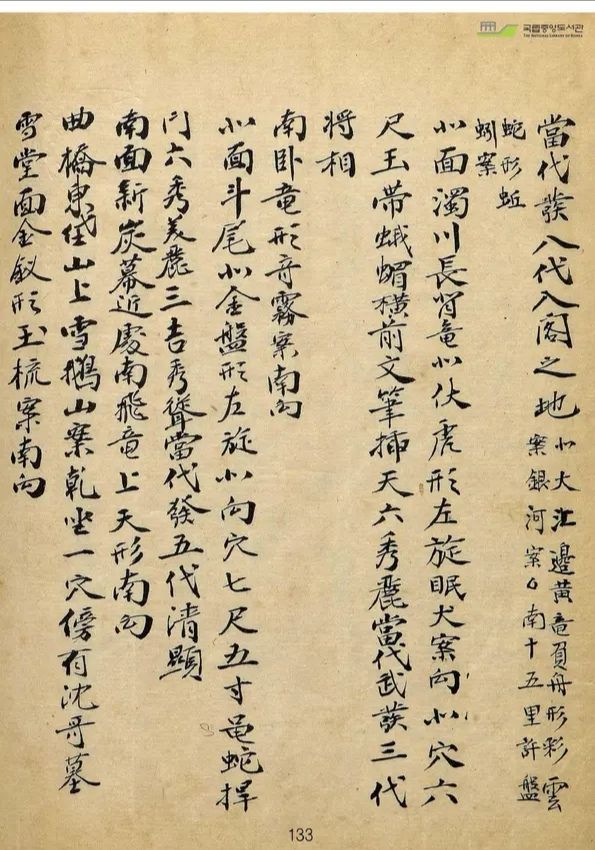 국립중앙도서관
THE NATIONAL LIBRARY OF KOREA
當代發八代入閣之地 北大江邊黃竜負舟形彩雲
案銀河案 南十五里許盤
蛇形蚯
蚓案
北面濁川長背竜北伏虎形左旋眠犬案向北穴六
尺玉帶蛾嵋橫前文筆揷天六秀麗當代武發三代
将相
南卧竜形奇霧案南向
北面斗尾北金盤形左旋北向穴七尺五寸黾蛇捍
门六秀美麗三吉秀聳當代發五代清顯
南面新炭幕近處南飛竜上天形南向
曲橋東垈山上雪鵝山案乾坐一穴傍有沈哥墓
雪堂面金釵形玉梳案南向
133